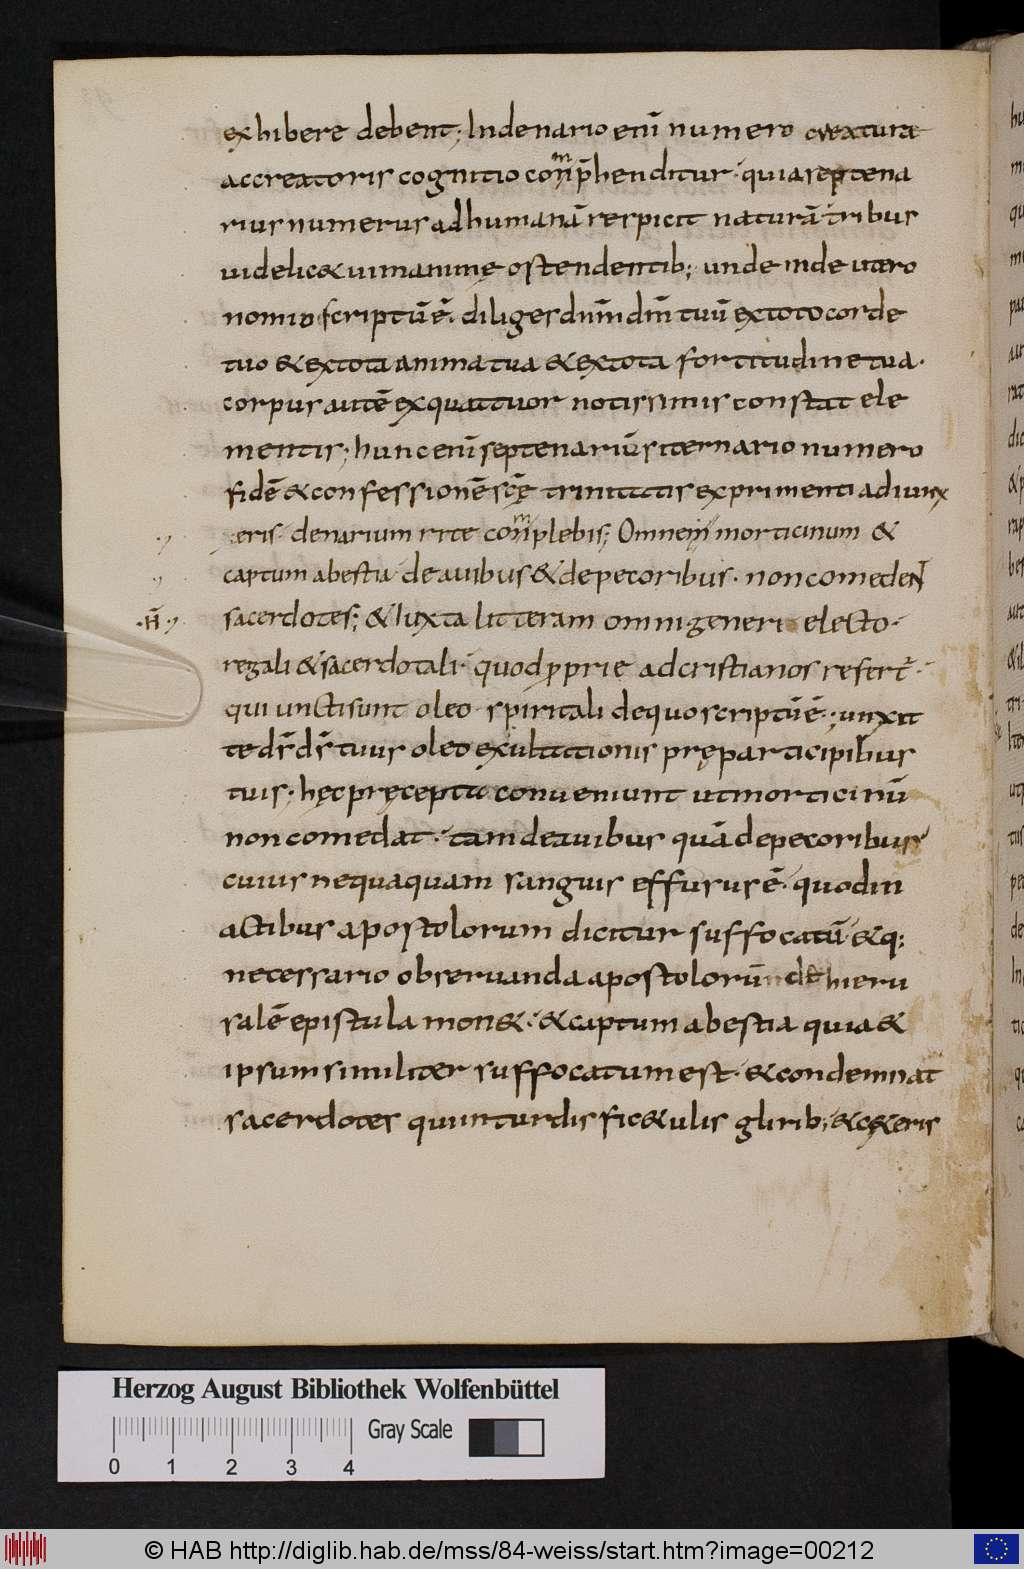 exhibere debent; Indenario eni᷃ numero creaturę
accreatoris cognitio conp̄henditur· quia septena
rius numerus ad humanā respicit naturā tribus
uidelic& uim animę ostendentib; unde inde utero
nomio scriptū ē· diliges dn̄m dm̄ tuū ex toto corde
tuo & ex tota anima tua & ex tota fortitudine tua·
corpus autē ex quattuor notissimis constat ele
mentis; hunc eni septenariū si ternario numero
fidē & confessionē scę trinitatis exprimenti adiunx
eris denarium rite conplebis; Omnem morticinum &
captum a bestia de auibus & de pecoribus· non comeden̄t
·n̄· sacerdotes; & iuxta litteram omni generi electo·
regali & sacerdotali· quod ꝓprie ad cristianos refert·
qui unctisunt oleo spiritali de quo scriptū ē·; unxit
te ds̄ ds̄ tuus oleo exultationis prę participibus
tuis· hęc pręcepta conueniunt ut morticinū
non comedat· tam de auibus quā de pecoribus
cuius nequaquam sanguis effusus ē· quod in
actibus apostolorum dicitur suffocatū· & q;
necessario obseruanda apostolorū de hieru
salē epistula mon&· & captum a bestia quia &
ipsum similiter suffocatum est· & condemnat
sacerdotes qui in turdis fic&ulis glirib; & c&eris
Herzog August Bibliothek Wolfenbüttel
Gray Scale
0 1 2 3 4
© HAB http://diglib.hab.de/mss/84-weiss/start.htm?image=00212